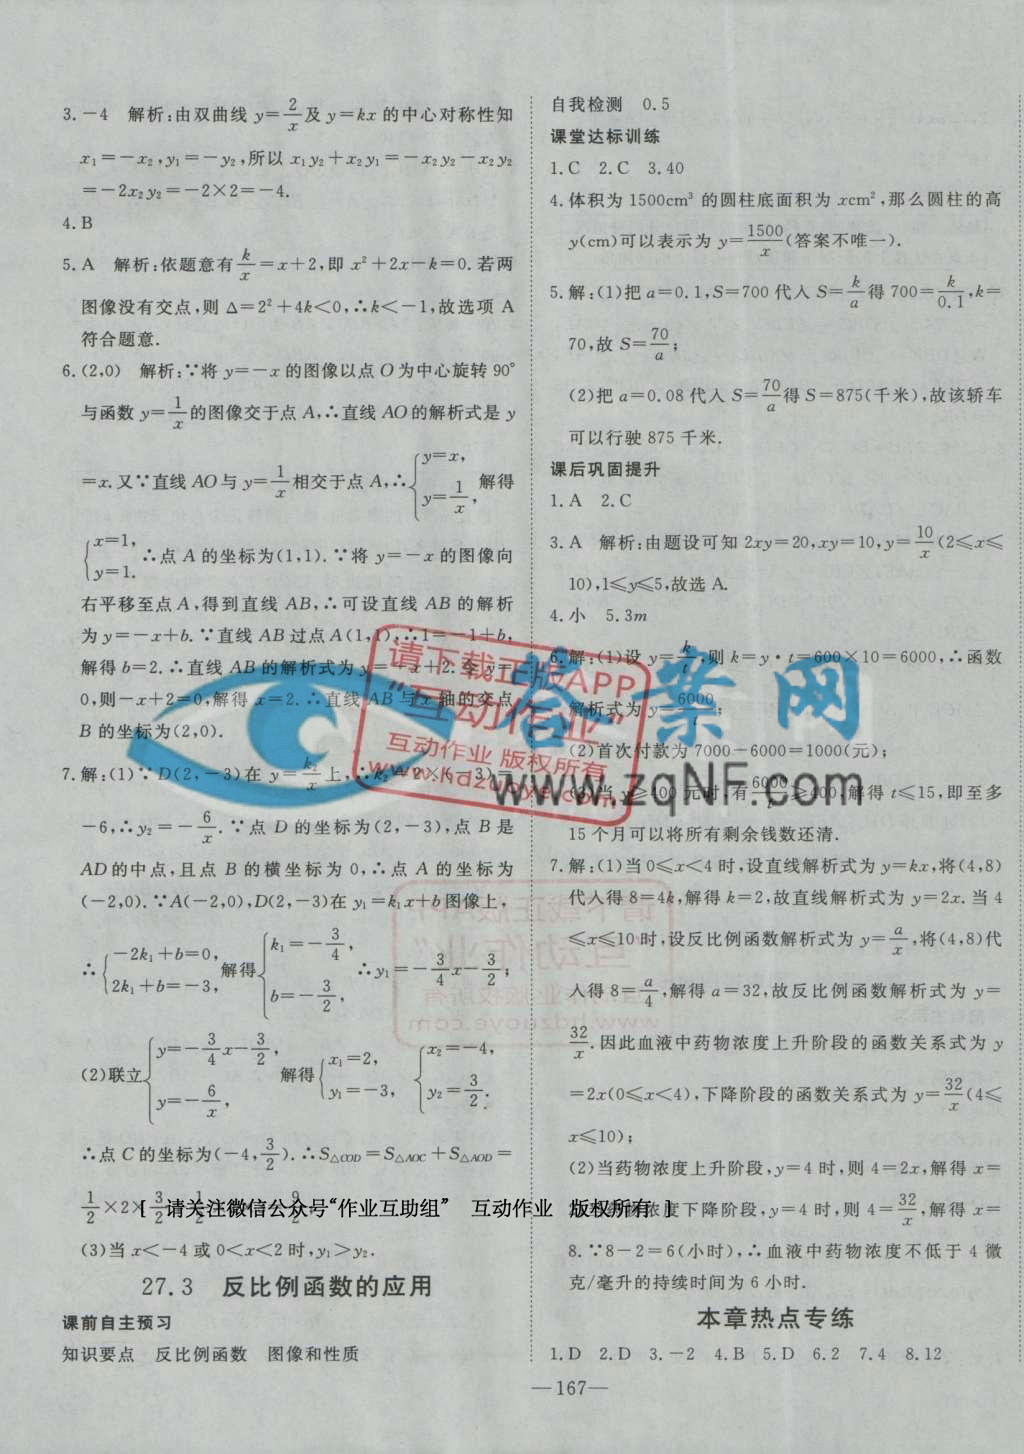 3.－4　解析:由双曲线 y=2/x 及 y=kx 的中心对称性知
x₁=－x₂,y₁=－y₂,所以 x₁y₂+x₂y₁=－x₂y₂－x₂y₂
=－2x₂y₂=－2×2=－4.
4.B
5.A　解析:依题意有 k/x=x+2,即 x²+2x－k=0.若两
图像没有交点,则 Δ=2²+4k<0,∴k<－1,故选项 A
符合题意.
6.(2,0)　解析:∵将 y=－x 的图像以点 O 为中心旋转 90°
与函数 y=1/x 的图像交于点 A,∴直线 AO 的解析式是 y
=x.又∵直线 AO 与 y=1/x 相交于点 A,∴{y=x, y=1/x, 解得
{x=1, y=1. ∴点 A 的坐标为(1,1).∵将 y=－x 的图像向
右平移至点 A,得到直线 AB,∴可设直线 AB 的解析
为 y=－x+b.∵直线 AB 过点 A(1,1),∴1=－1+b,
解得 b=2.∴直线 AB 的解析式为 y=－x+2.令 y=
0,则－x+2=0,解得 x=2.∴直线 AB 与 x 轴的交点
B 的坐标为(2,0).
7.解:(1)∵D(2,－3)在 y=k₂/x 上,∴k₂=2×(－3)=
－6,∴y₂=－6/x.∵点 D 的坐标为(2,－3),点 B 是
AD 的中点,且点 B 的横坐标为 0,∴点 A 的坐标为
(－2,0).∵A(－2,0),D(2,－3)在 y₁=k₁x+b 图像上,
∴{－2k₁+b=0, 2k₁+b=－3, 解得{k₁=－3/4 b=－3/2, ∴y₁=－3/4x－3/2;
(2)联立{y=－3/4x－3/2, y=－6/x, 解得{x₁=2, y₁=－3, {x₂=－4, y₂=3/2.
∴点 C 的坐标为(－4,3/2).∴S△COD=S△AOC+S△AOD=
1/2×2×3/2
[　请关注微信公众号“作业互助组”　互动作业　版权所有　]
(3)当 x<－4 或 0<x<2 时,y₁>y₂.
27.3　反比例函数的应用
课前自主预习
知识要点　反比例函数　图像和性质
自我检测　0.5
课堂达标训练
1.C　2.C　3.40
4.体积为 1500cm³ 的圆柱底面积为 xcm²,那么圆柱的高
y(cm)可以表示为 y=1500/x(答案不唯一).
5.解:(1)把 a=0.1,S=700 代入 S=k/a 得 700=k/0.1,k=
70,故 S=70/a;
(2)把 a=0.08 代入 S=70/a 得 S=875(千米),故该轿车
可以行驶 875 千米.
课后巩固提升
1.A　2.C
3.A　解析:由题设可知 2xy=20,xy=10,y=10/x(2⩽x⩽
10),1⩽y⩽5,故选 A.
4.小　5.3m
6.解:(1)设 y=k/t,则 k=y·t=600×10=6000,∴函数
解析式为 y=6000/t;
(2)首次付款为 7000－6000=1000(元);
(3)当 y⩾400 时,有6000/t⩾400.解得 t⩽15,即至多
15 个月可以将所有剩余钱数还清.
7.解:(1)当 0⩽x<4 时,设直线解析式为 y=kx,将(4,8)
代入得 8=4k,解得 k=2,故直线解析式为 y=2x.当 4
⩽x⩽10 时,设反比例函数解析式为 y=a/x,将(4,8)代
入得 8=a/4,解得 a=32,故反比例函数解析式为 y=
32/x.因此血液中药物浓度上升阶段的函数关系式为 y
=2x(0⩽x<4),下降阶段的函数关系式为 y=32/x(4⩽
x⩽10);
(2)当药物浓度上升阶段,y=4 时,则 4=2x,解得 x=
2.当药物浓度下降阶段,y=4 时,则 4=32/x,解得 x=
8.∵8－2=6(小时),∴血液中药物浓度不低于 4 微
克/毫升的持续时间为 6 小时.
本章热点专练
1.D　2.D　3.－2　4.B　5.D　6.2　7.4　8.12
—167—
请下载正版APP
“互动作业”
互动作业 版权所有
www.hdzuoye.com
答案网
www.zqNF.com